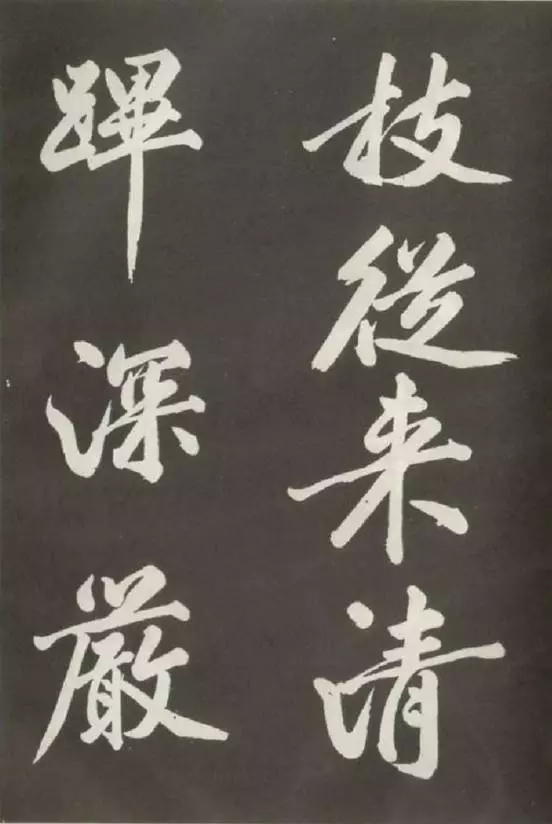 技從来清
蹕深嚴